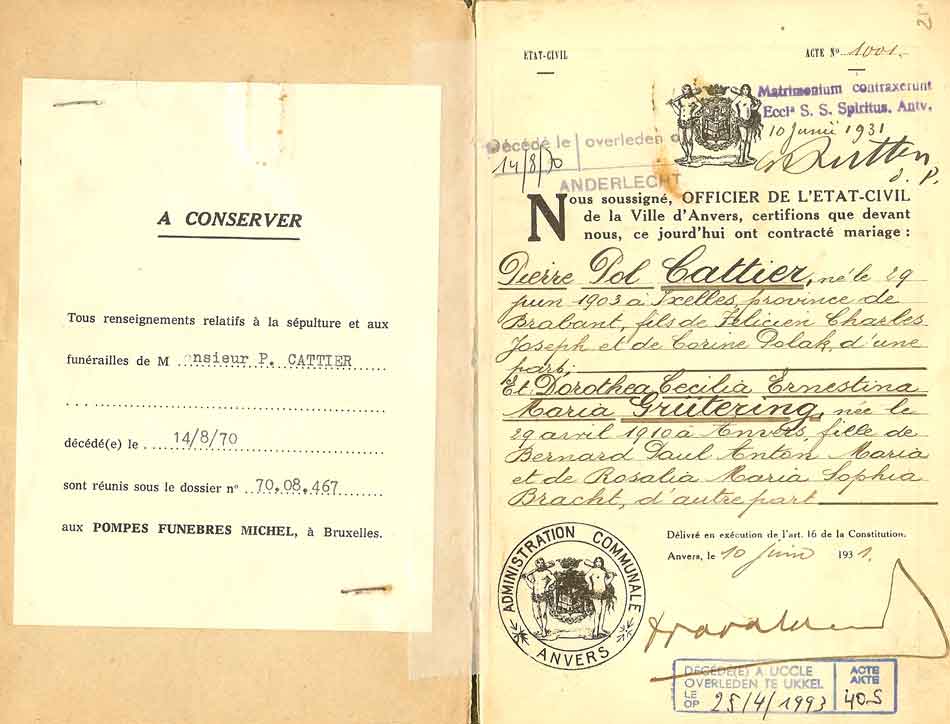 A CONSERVER
Tous renseignements relatifs à la sépulture et aux
funérailles de M onsieur P. CATTIER
décédé(e) le 14/8/70
sont réunis sous le dossier n° 70.08.467
aux POMPES FUNEBRES MICHEL, à Bruxelles.
ETAT-CIVIL
ACTE N° 1001.
Matrimonium contraxerunt
Eccla S. S. Spiritus. Antv.
10 Junii 1931
Décédé le overleden o
14/8/70
ANDERLECHT
Nous soussigné, OFFICIER DE L'ETAT-CIVIL
de la Ville d'Anvers, certifions que devant
nous, ce jourd'hui ont contracté mariage :
Pierre Pol Cattier, né le 29
juin 1903 à Ixelles, province de
Brabant, fils de Félicien Charles
Joseph et de Corine Polak, d'une
part;
Et Dorothea Cecilia Ernestina
Maria Grütering, née le
29 avril 1910 à Anvers, fille de
Bernard Paul Anton Maria
et de Rosalia Maria Sophia
Bracht, d'autre part
Délivré en exécution de l'art. 16 de la Constitution.
Anvers, le 10 juin 1931.
ADMINISTRATION COMMUNALE
ANVERS
DECEDE(E) A UCCLE
OVERLEDEN TE UKKEL
LE
OP 25/4/1993
ACTE
AKTE
405